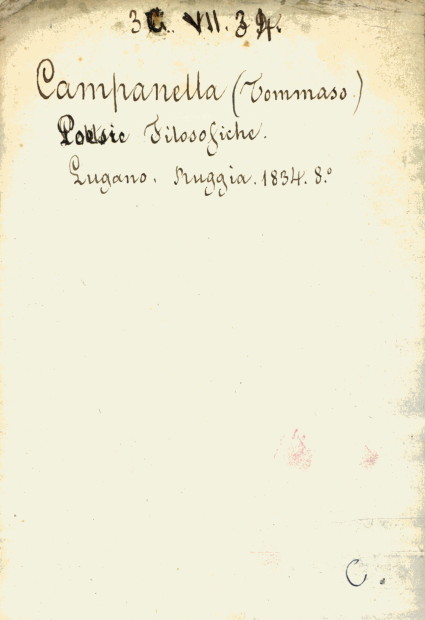 VII.
Campanella (Tommaso)
Poesie Filosofiche.
Lugano. Ruggia. 1834. 8.°
C.